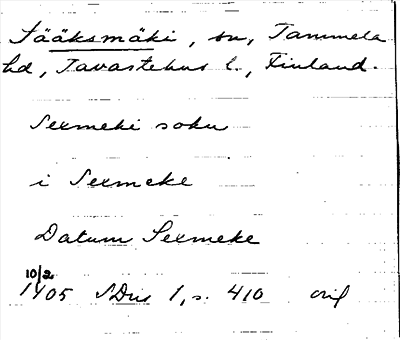 Sääksmäki, sn, Tammela
hd, Tavastehus l., Finland.
Sexmeki sokn
i Sexmeke
Datum Sexmeke
10/2
1405 SDns 1, s. 410 orig